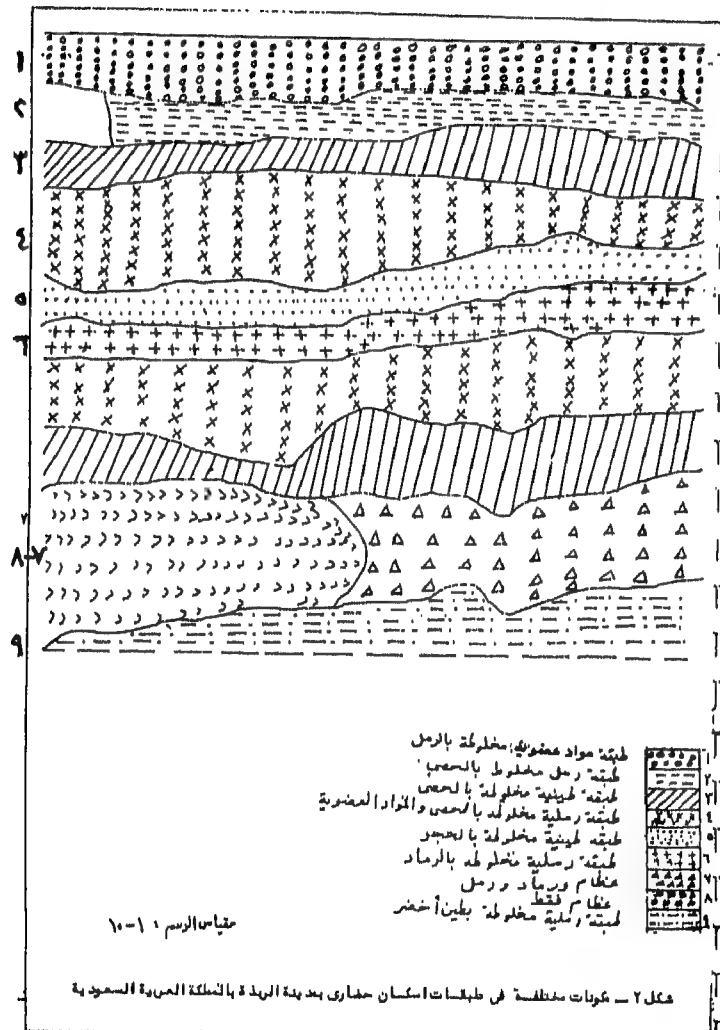 ١
٢
٣
٤
٥
٦
٨-٧
٩
طبقة مواد عضوية مخلوطة بالرمل
طبقة رمل مخلوط بالحصى
طبقة طينية مخلوطة بالحصى
طبقة رملية مخلوطة بالحصى والمواد العضوية
طبقة طينية مخلوطة بالحجر
طبقة رملية مخلوطة بالرماد
عظام ورماد ورمل
عظام فقط
طبقة رملية مخلوطة بطين أخضر
١
٢
٣
٤
٥
٦
٧
٨
٩
مقياس الرسم : ١-١٠
شكل ٢ ــ مكونات مختلفة في طبقات اسكان حضارى بمدينة الربذة بالمملكة العربية السعودية